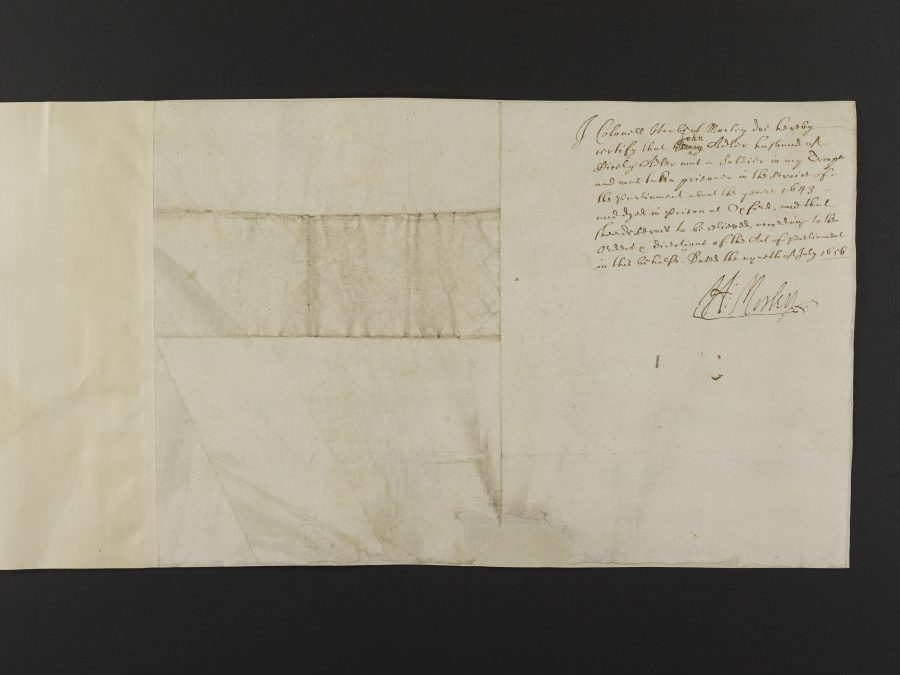 I Colonell Herbert Morley doe hereby
certify that John Henry Aster husband of
Sicely Aster was a Soldier in my Troope
and was taken prisoner in the service of
the Parliament about the yeare 1643
and dyed in prison at Oxford, and that
shee deserves to be relieved, according to the
Orders & directions of the Act of Parliament
in this behalfe. Dated the nyneth of July 1656
H: Morley